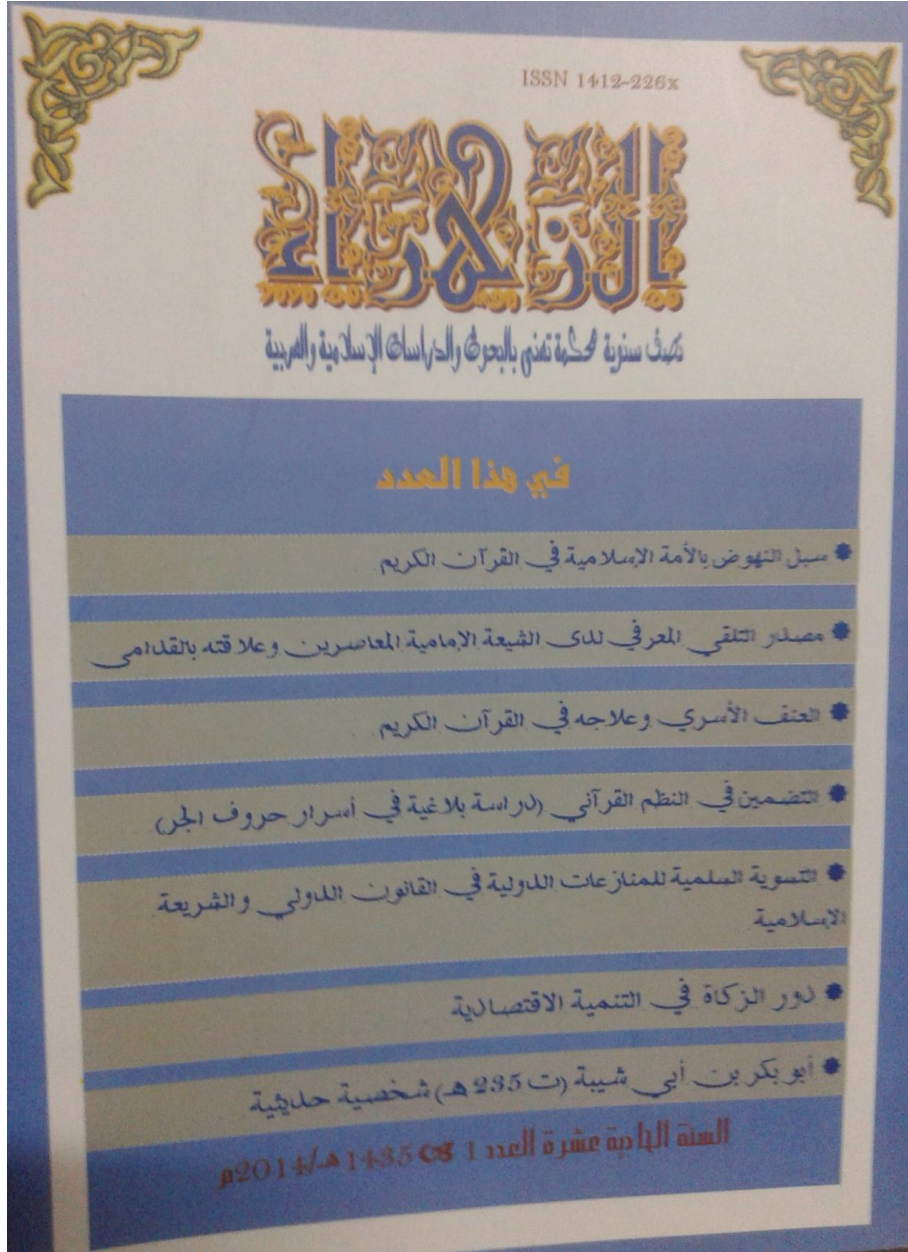 ISSN 1412-226x
الزهراء
نصف سنوية محكمة تعنى بالبحوث والدراسات الإسلامية والعربية
في هذا العدد
سبل النهوض بالأمة الإسلامية في القرآن الكريم
مصدر التلقي المعرفي لدى الشيعة الإمامية المعاصرين وعلاقته بالقدامى
العنف الأسري وعلاجه في القرآن الكريم
التضمين في النظم القرآني (دراسة بلاغية في أسرار حروف الجر)
التسوية السلمية للمنازعات الدولية في القانون الدولي والشريعة
الإسلامية
دور الزكاة في التنمية الاقتصادية
أبو بكر بن أبي شيبة (ت 235 هـ) شخصية حديثية
السنة الحادية عشرة العدد 1 1435هـ/2014م